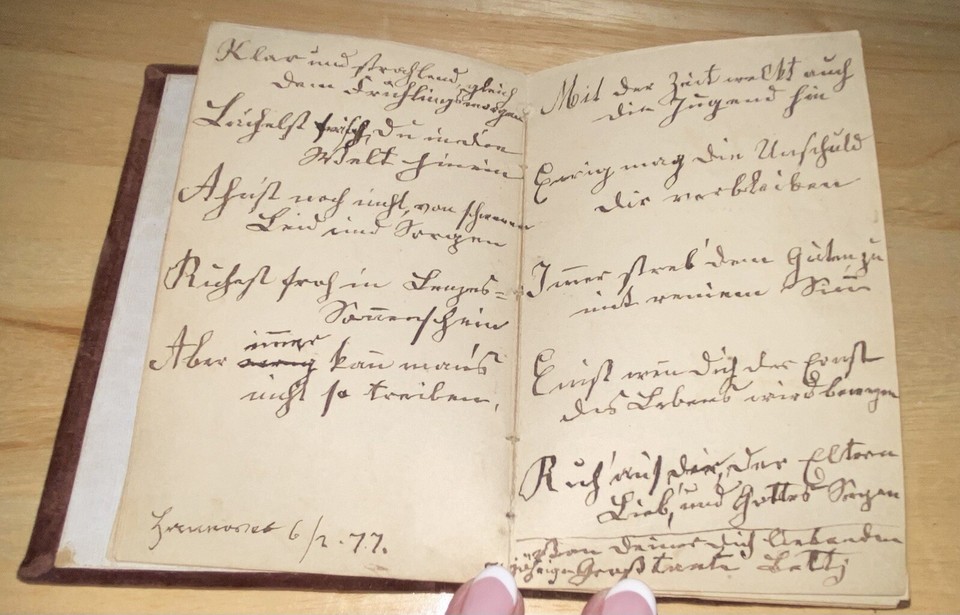 Klar und strahlend, gleich
dem Frühlingsmorgen
Lächelst frisch, du in die
Welt hinein
Ahnst noch nicht, von schweren
Leid und Sorgen
Ruhest froh in Lenzes=
Sonnenschein
immer
Aber ewig kann man's
nicht so treiben,
6/2.77.
Mit der Zeit welkt auch
die Jugend hin
Ewig mag die Unschuld
dir verbleiben
Immer streb' dem Guten zu
mit reinem Sinn
Einst wenn dich der Ernst
des Lebens wird bewegen
Ruh' auf dir, der Eltern
Lieb', und Gottes Segen
Von deiner dich liebenden
jährigen Großtante Betty